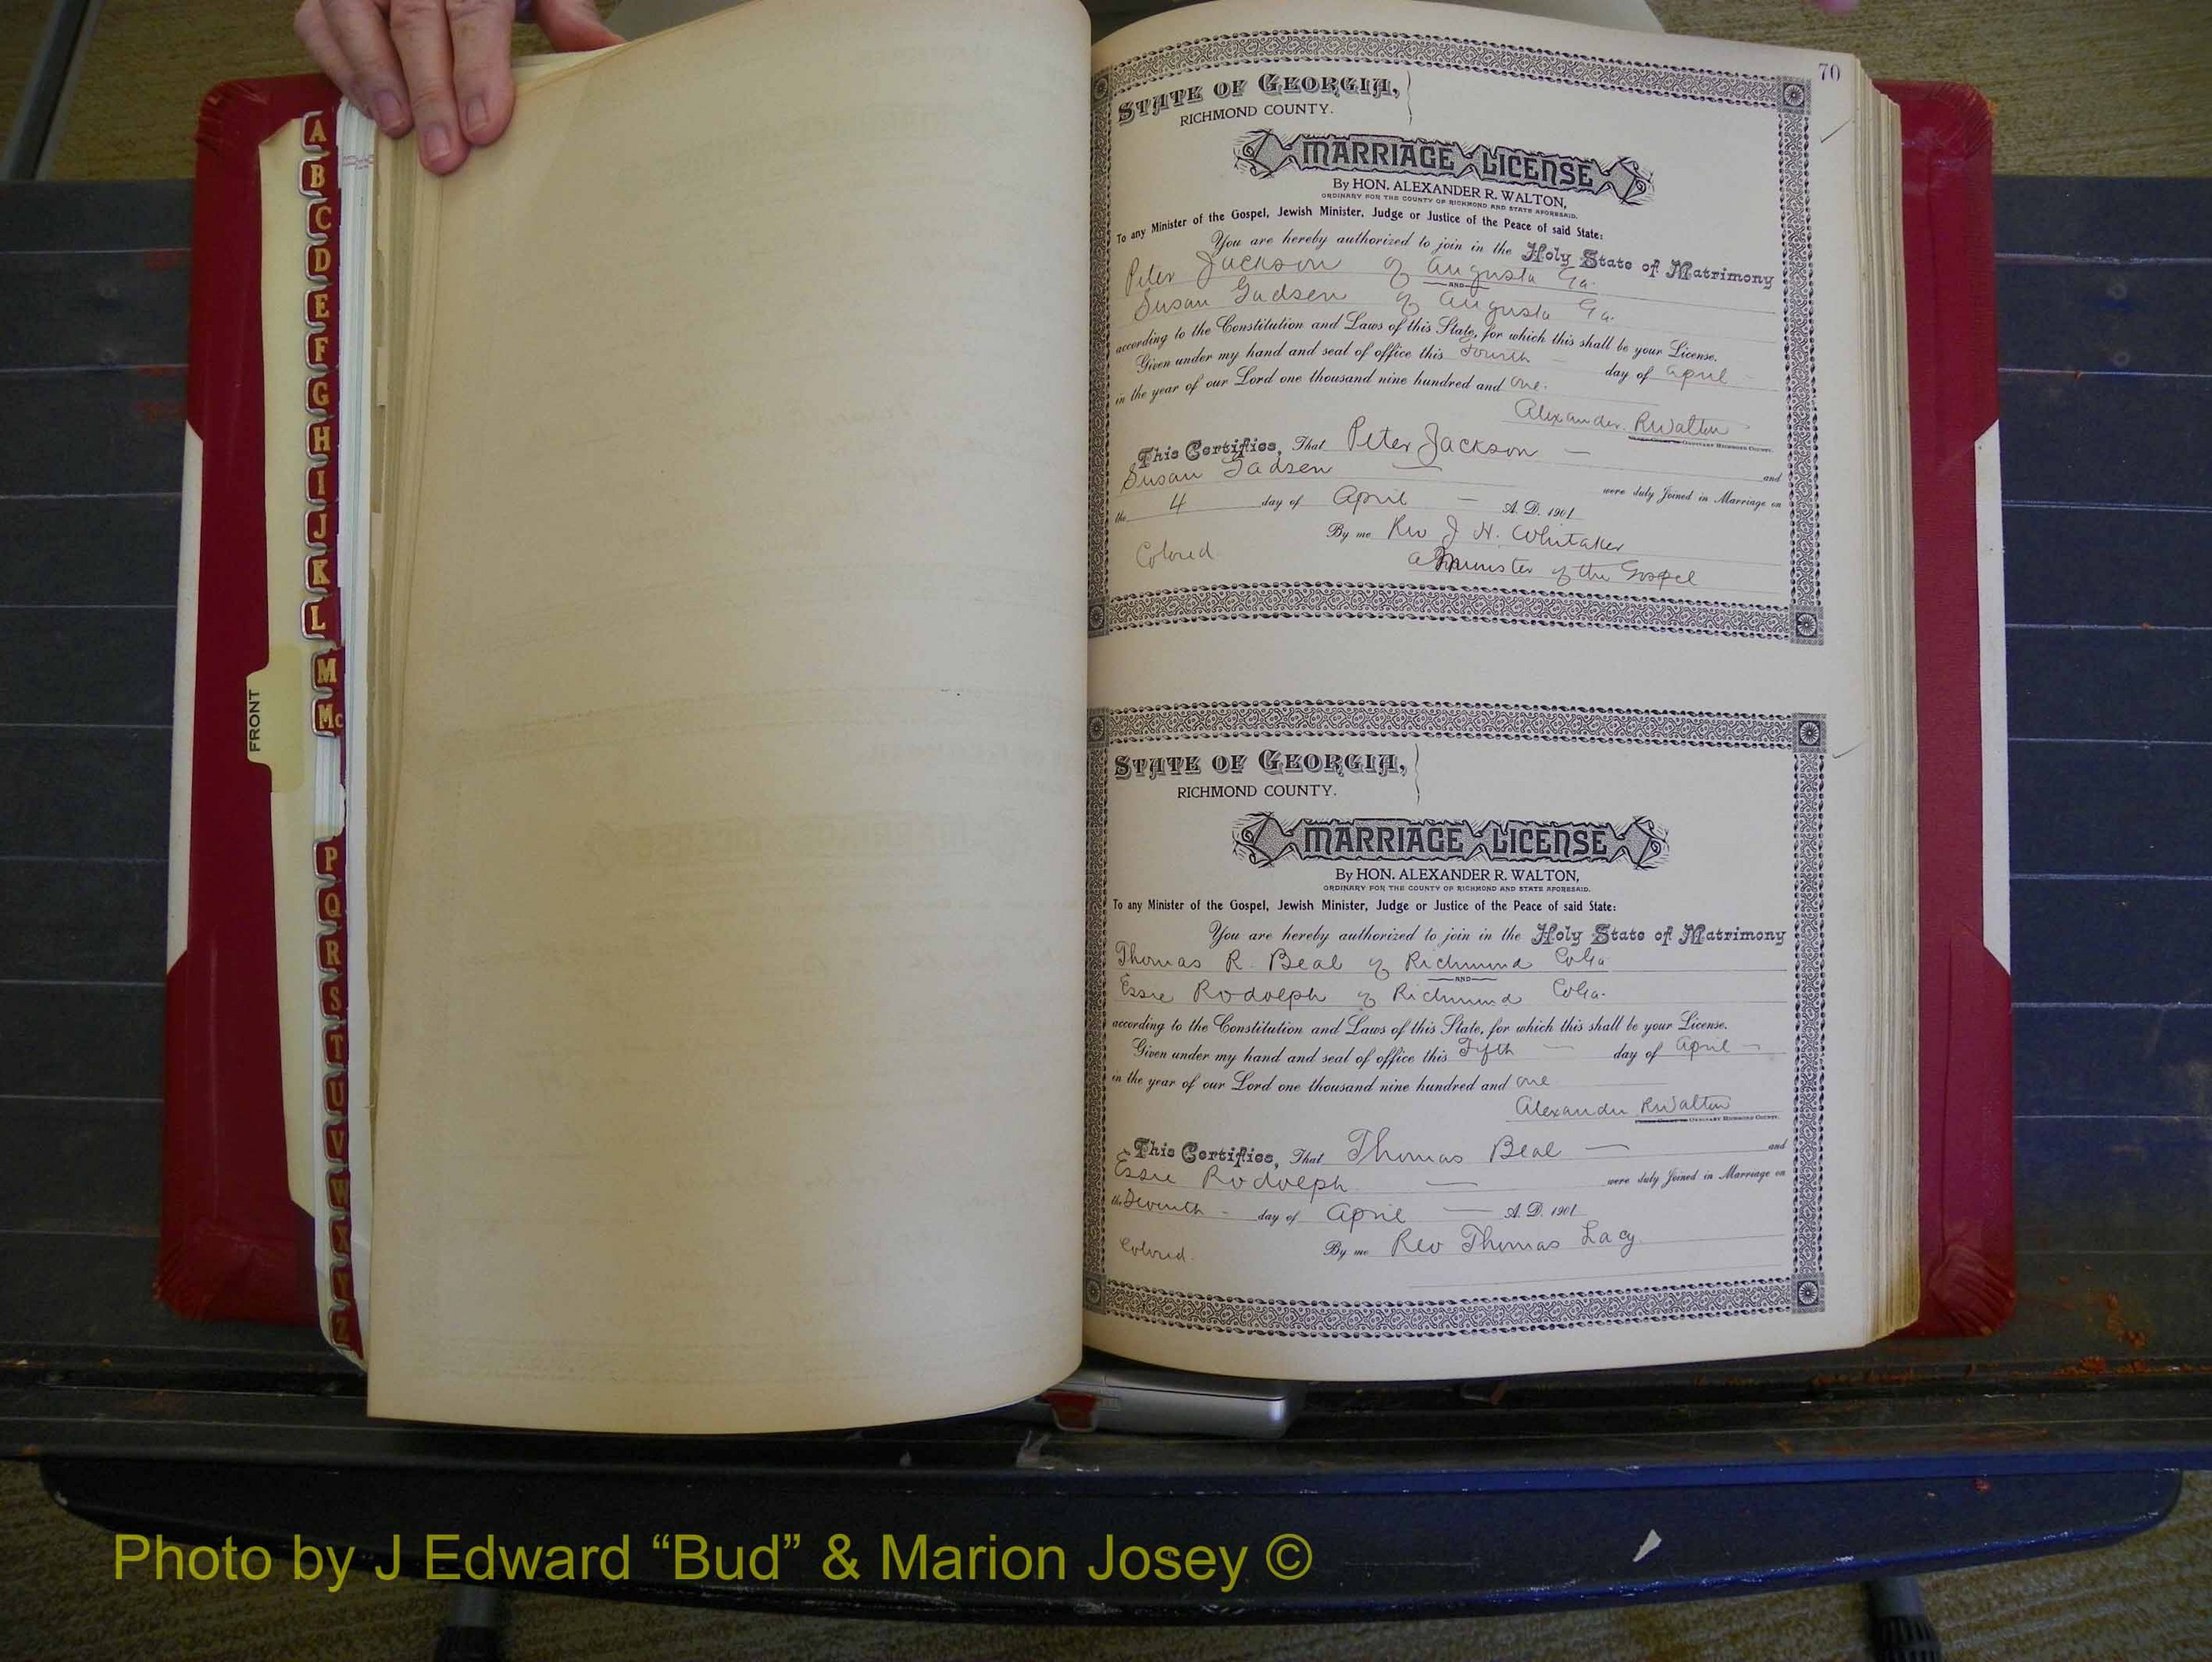 A
B
C
D
E
F
G
H
I
J
K
L
M
Mc
FRONT
P
Q
R
S
T
U
V
W
X
Y
Z
70
STATE OF GEORGIA,
RICHMOND COUNTY.
MARRIAGE LICENSE
By HON. ALEXANDER R. WALTON,
ORDINARY FOR THE COUNTY OF RICHMOND AND STATE AFORESAID.
To any Minister of the Gospel, Jewish Minister, Judge or Justice of the Peace of said State:
You are hereby authorized to join in the Holy State of Matrimony
Peter Jackson of Augusta Ga.
AND
Susan Gadsen of Augusta Ga.
according to the Constitution and Laws of this State, for which this shall be your License.
Given under my hand and seal of office this Fourth day of April
in the year of our Lord one thousand nine hundred and one.
Alexander R Walton
ORDINARY RICHMOND COUNTY.
This Certifies, That Peter Jackson and
Susan Gadsen were duly Joined in Marriage on
the 4 day of April A. D. 1901
By me Rev J H. Whitaker
Colored a Minister of the Gospel
STATE OF GEORGIA,
RICHMOND COUNTY.
MARRIAGE LICENSE
By HON. ALEXANDER R. WALTON,
ORDINARY FOR THE COUNTY OF RICHMOND AND STATE AFORESAID.
To any Minister of the Gospel, Jewish Minister, Judge or Justice of the Peace of said State:
You are hereby authorized to join in the Holy State of Matrimony
Thomas R. Beal of Richmond Co Ga
AND
Essie Rodolph of Richmond Co Ga.
according to the Constitution and Laws of this State, for which this shall be your License.
Given under my hand and seal of office this Fifth day of April
in the year of our Lord one thousand nine hundred and one
Alexander R Walton
ORDINARY RICHMOND COUNTY.
This Certifies, That Thomas Beal and
Essie Rodolph were duly Joined in Marriage on
the Seventh day of April A. D. 1901
Colored. By me Rev Thomas Lacy
Photo by J Edward “Bud” & Marion Josey ©